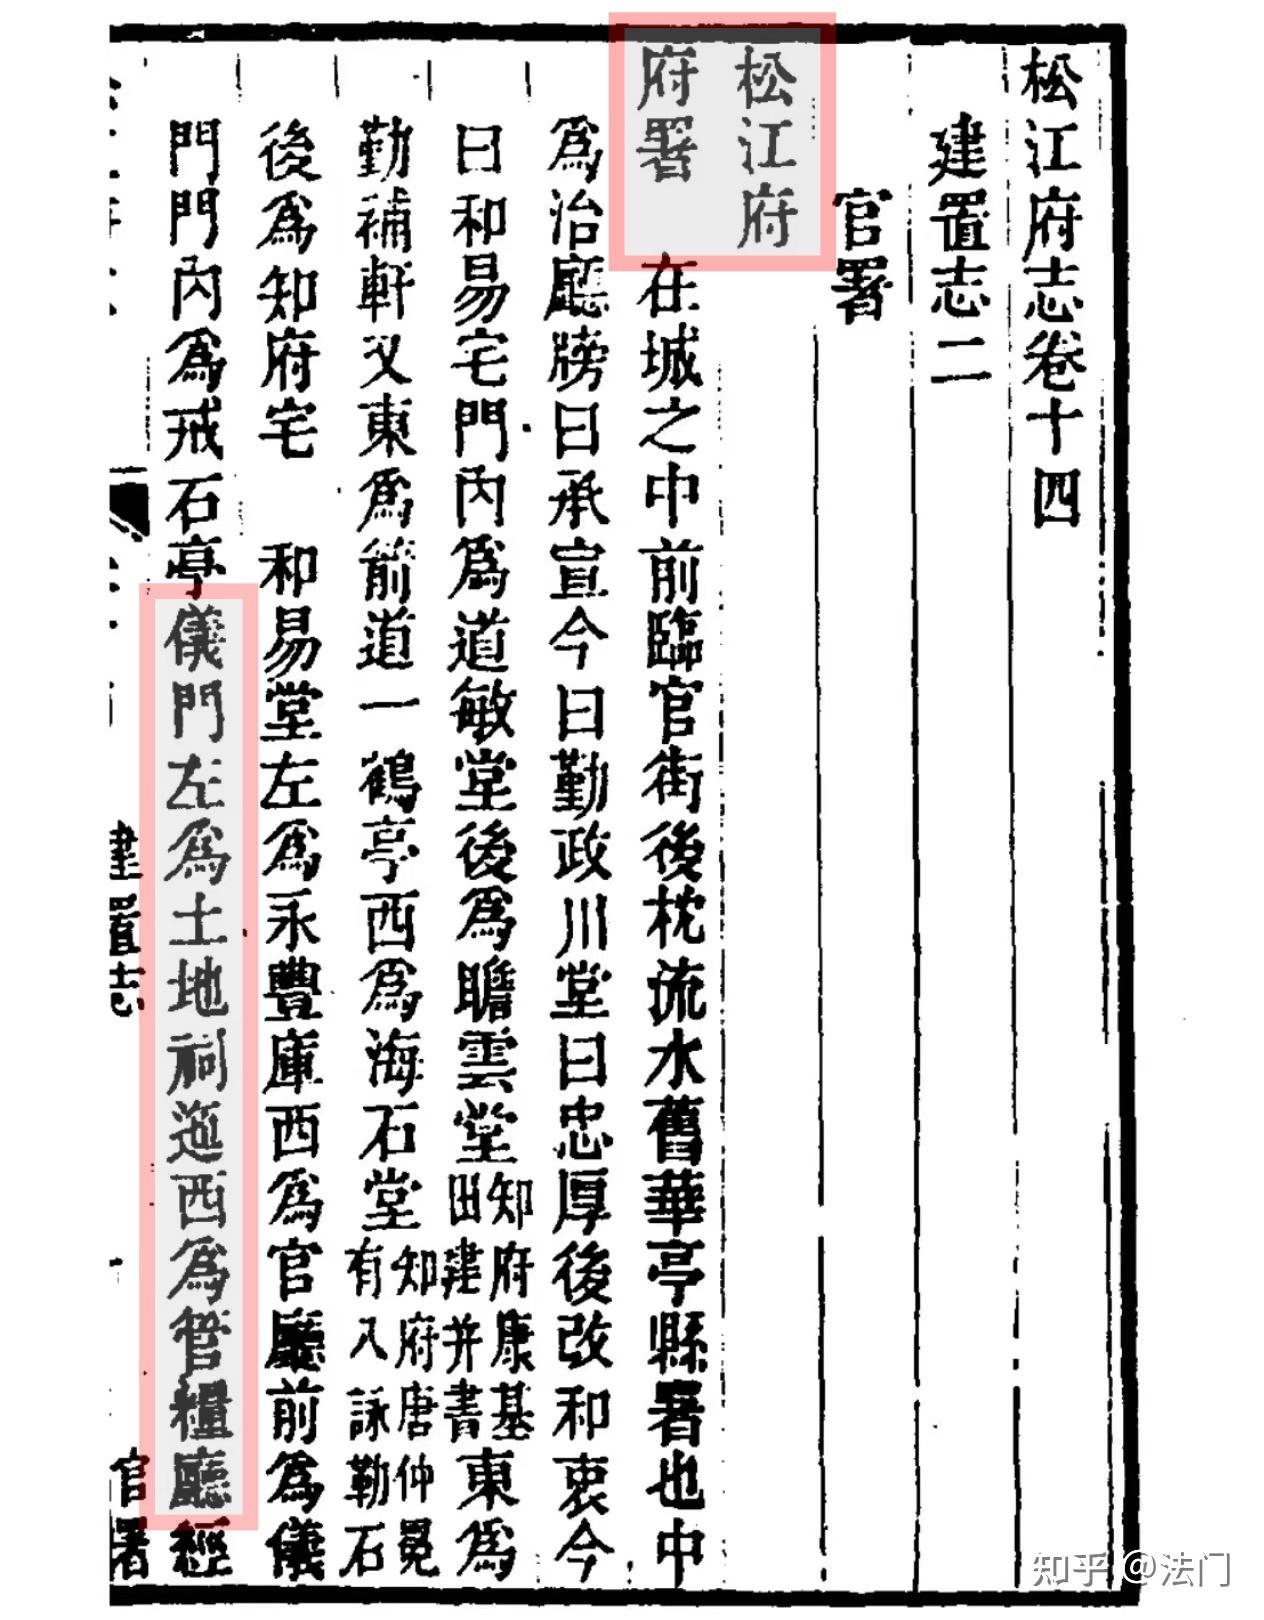 松江府志卷十四
建置志二
官署
松江府
府署 在城之中前臨官街後枕流水舊華亭縣署也中
為治廳牓曰承宣今曰勤政川堂曰忠厚後改和衷今
曰和易宅門內為道敏堂後為瞻雲堂知府康基田建并書東為
勤補軒又東為箭道一鶴亭西為海石堂知府唐仲冕有八詠勒石
後為知府宅 和易堂左為永豐庫西為官廳前為儀
門門內為戒石亭儀門左為土地祠迤西為管糧廳經
建置志 官署
知乎 @法门